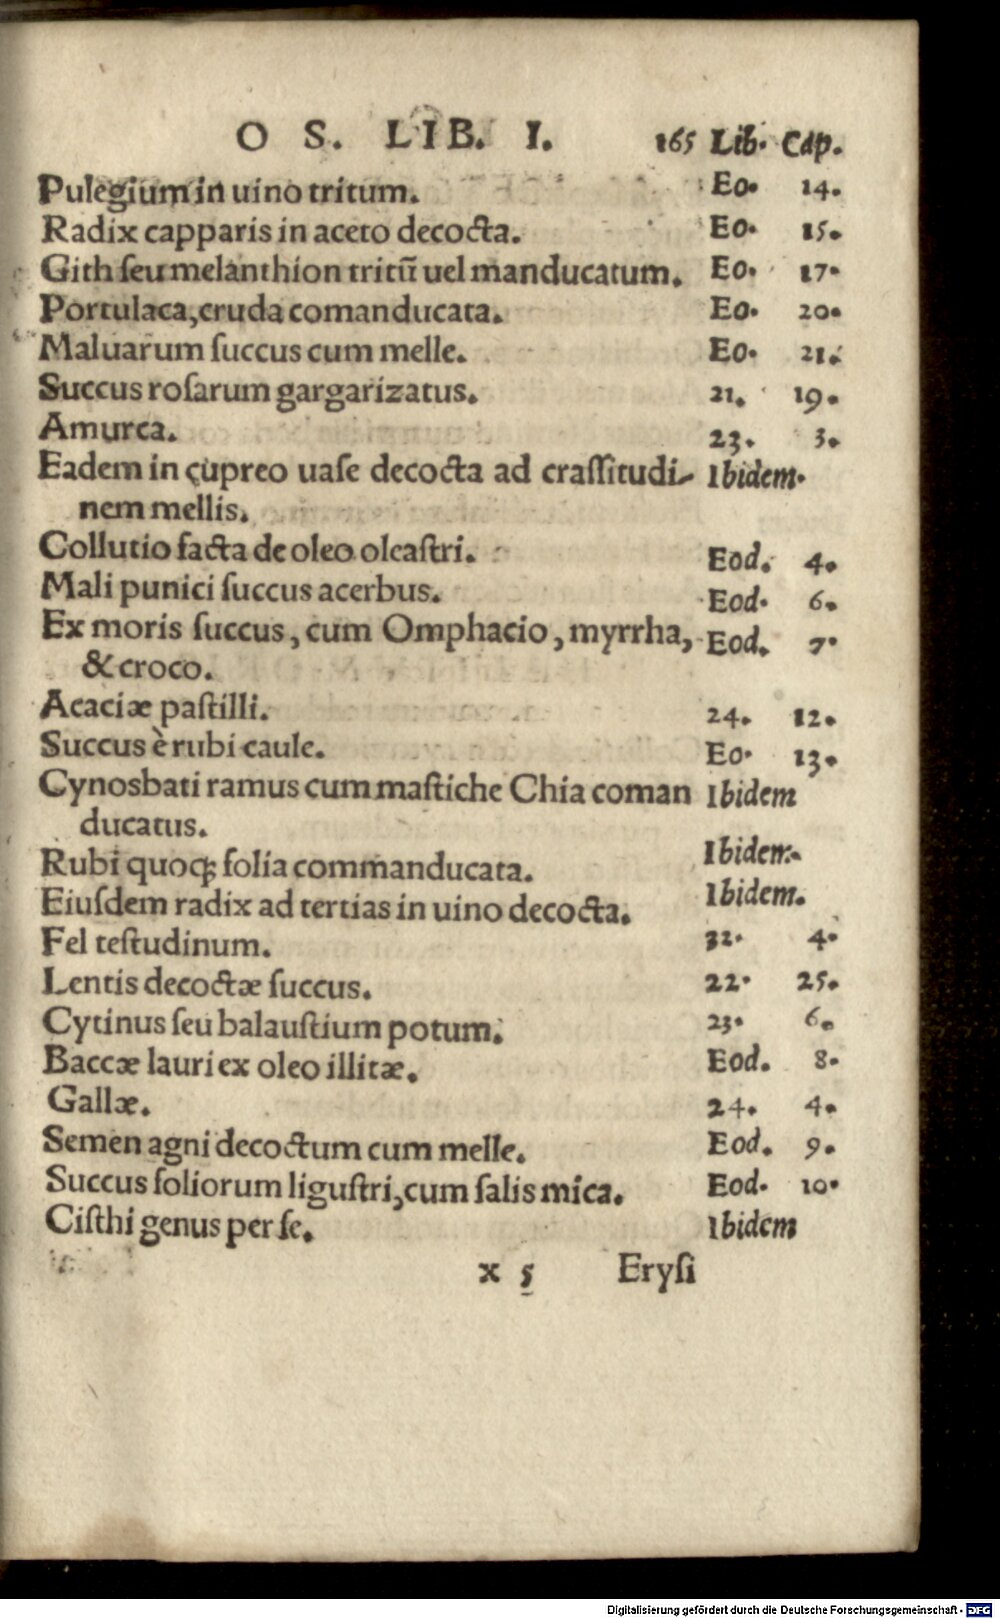 O S. LIB. I. 165 Lib. Cap.
Pulegium in uino tritum. Eo. 14.
Radix capparis in aceto decocta. Eo. 15.
Gith ſeu melanthion tritū uel manducatum. Eo. 17.
Portulaca, cruda comanducata. Eo. 20.
Maluarum ſuccus cum melle. Eo. 21.
Succus roſarum gargarizatus. 21. 19.
Amurca. 23. 3.
Eadem in cupreo uaſe decocta ad craſſitudi- Ibidem.
nem mellis.
Collutio facta de oleo oleaſtri. Eod. 4.
Mali punici ſuccus acerbus. Eod. 6.
Ex moris ſuccus, cum Omphacio, myrrha, Eod. 7.
& croco.
Acaciæ paſtilli. 24. 12.
Succus è rubi caule. Eo. 13.
Cynosbati ramus cum maſtiche Chia coman Ibidem
ducatus.
Rubi quoq; folia commanducata. Ibidem.
Eiuſdem radix ad tertias in uino decocta. Ibidem.
Fel teſtudinum. 32. 4.
Lentis decoctæ ſuccus. 22. 25.
Cytinus ſeu balauſtium potum. 23. 6.
Baccæ lauri ex oleo illitæ. Eod. 8.
Gallæ. 24. 4.
Semen agni decoctum cum melle. Eod. 9.
Succus foliorum liguſtri, cum ſalis mica. Eod. 10.
Ciſthi genus per ſe. Ibidem
x 5 Eryſi
Digitalisierung gefördert durch die Deutsche Forschungsgemeinschaft - DFG